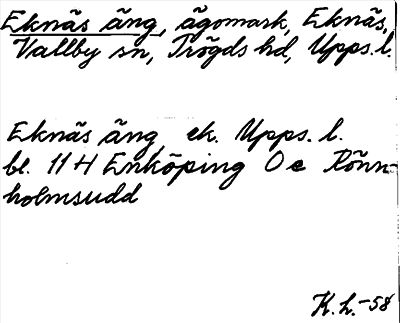 Eknäs äng, ägomark, Eknäs,
Vallby sn, Trögds hd, Upps. l.
Eknäs äng, ek. Upps. l.
bl. 11 H Enköping 0 e Rönn-
holmsudd
K.h. -58